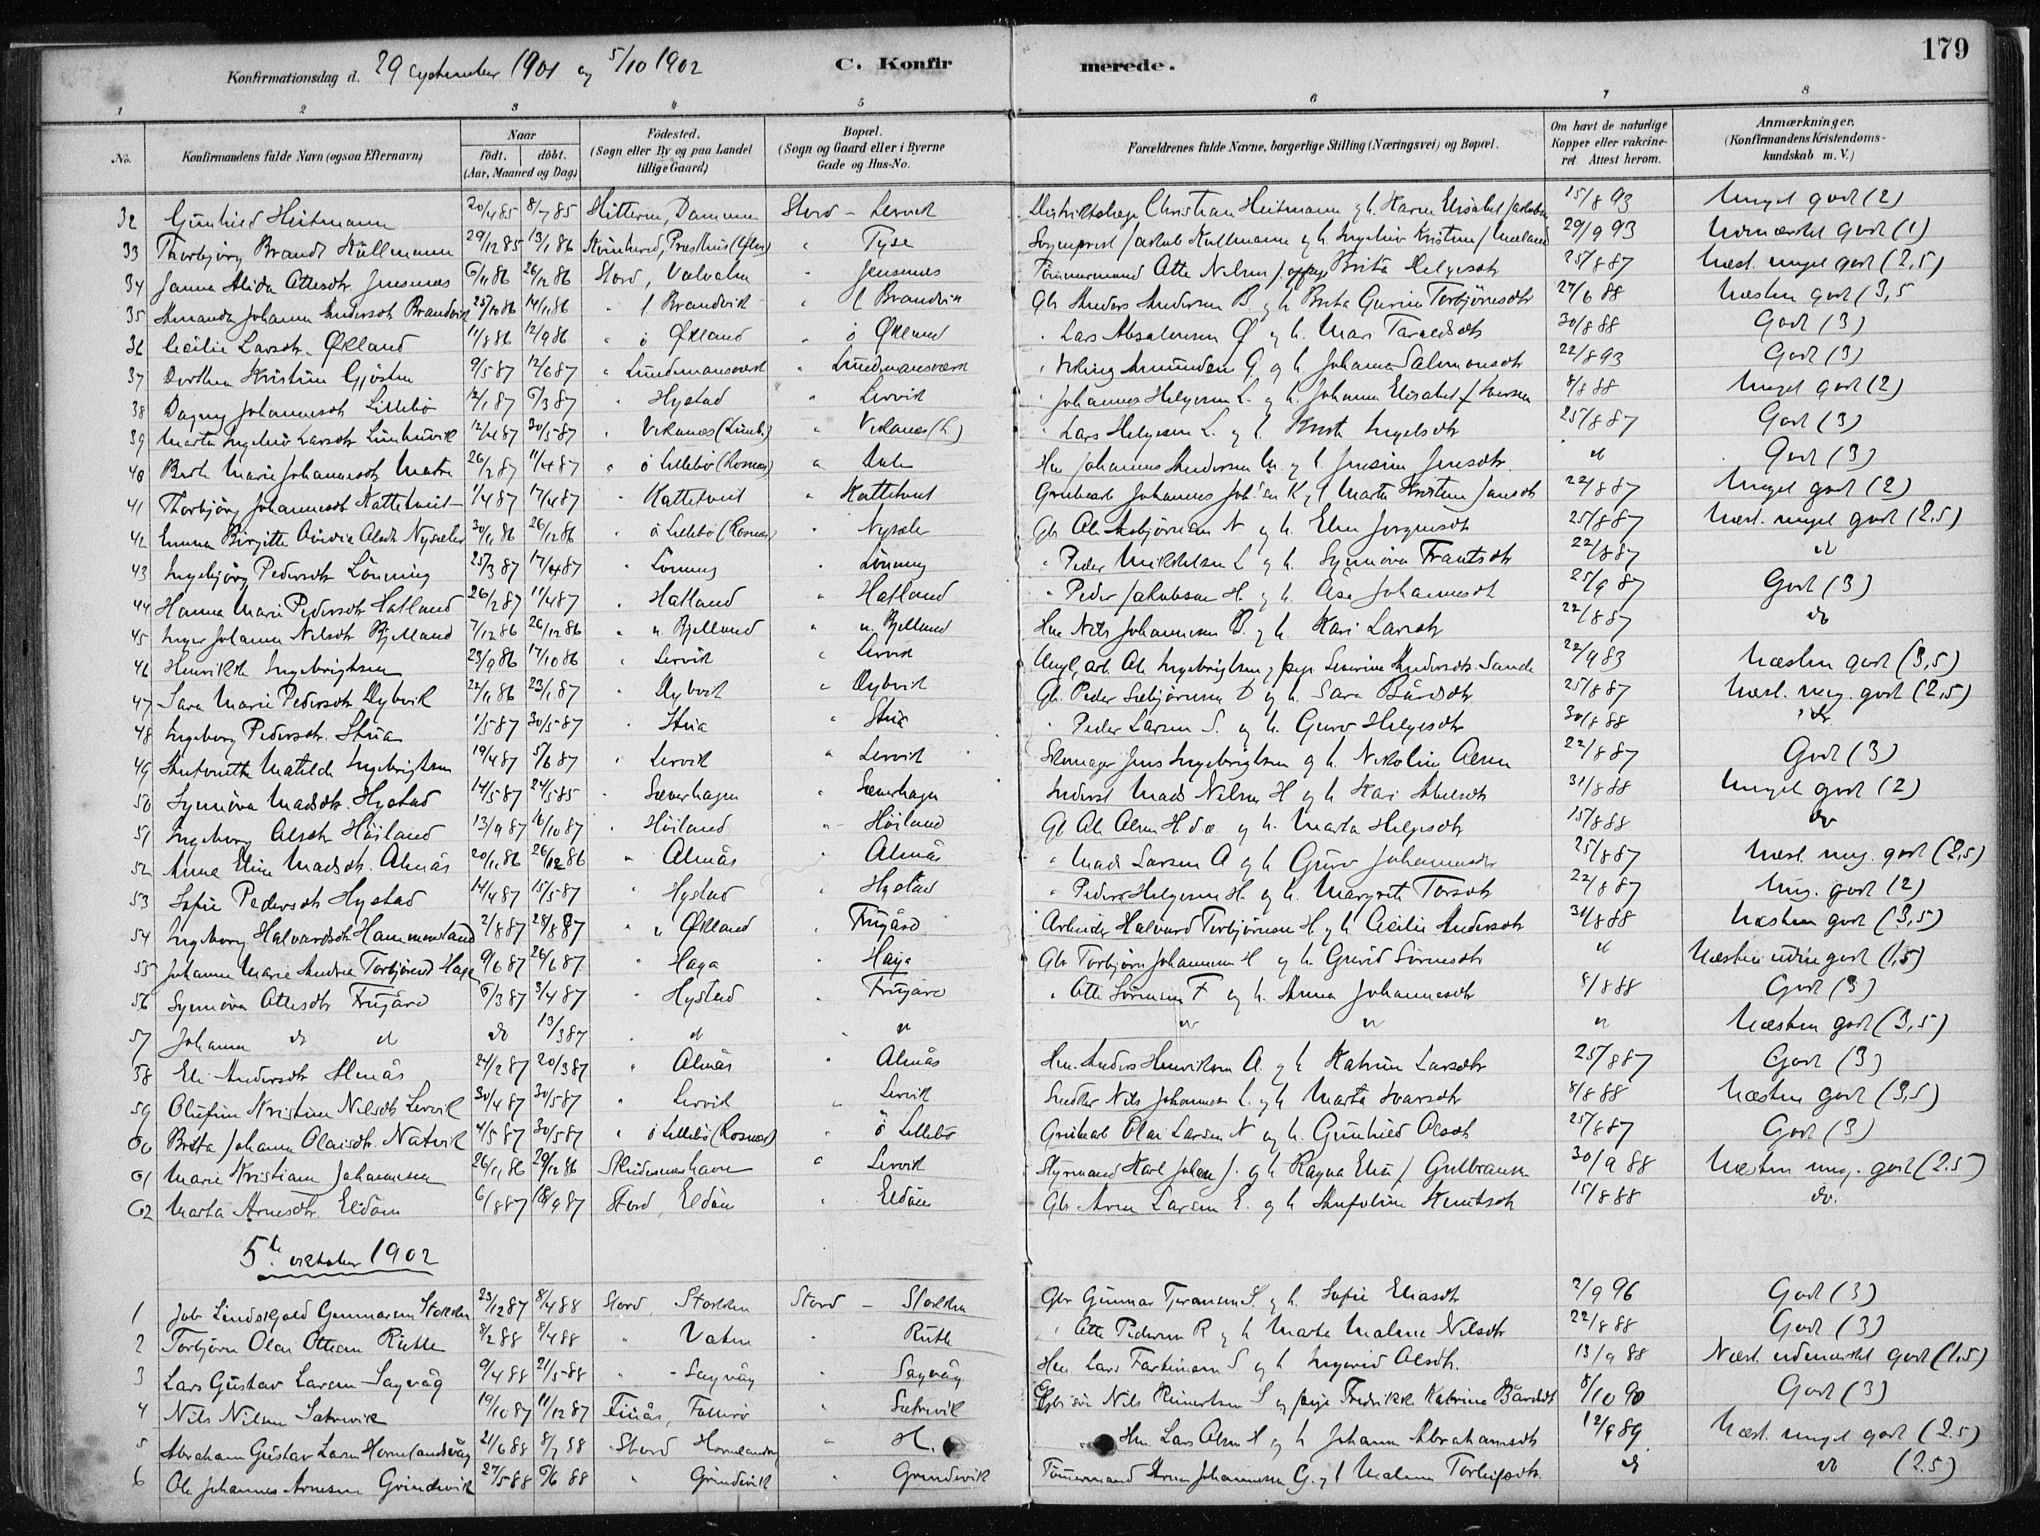 179
Konfirmationsdag d. 29 september 1901 og 5/10 1902 C. Konfirmerede.
1 2 3 4 5 6 7 8
No. Konfirmandens fulde Navn (ogsaa Efternavn) Naar födt. döbt. (Aar, Maaned og Dag) Födested. (Sogn eller By og paa Landet tillige Gaard) Bopæl. (Sogn og Gaard eller i Byerne Gade og Hus-No. Forældrenes fulde Navne, borgerlige Stilling (Næringsvei) og Bopæl. Om havt de naturlige Kopper eller vakcineret. Attest herom. Anmærkninger. (Konfirmandens Kristendomskundskab m. V.)
32 Gunhild Heitmann 20/4 85 8/7 85 Hitteren, Stord - Lervik Distriktslæge Christian Heitmann og h. Karen Elisabet 15/8 93 Meget godt (2)
33 Thorbjörg Brandt Kullmann 29/12 85 13/1 86 Kvinherad, " Tyse Sogneprest Jakob Kullmann og h. Ingebor Kristine 29/9 93 Udmærket godt (1)
34 Janna Alida Ottesdtr. Jensenes 6/11 86 26/12 86 Stord, Valvatn " Jensenes Tömmermand Otte Nilsen Brita Helgesdtr 25/8 87 Næst. meget godt (2,5)
35 Amanda Johanna Andersdtr Brandvik 25/10 86 14/11 86 " l Brandvik l Brandvik Gbr Anders Andersen B. og h. Brita Gurine Torbjörnsdtr 27/6 88 Næsten godt (3,5
36 Cecilie Larsdtr. Økland 11/8 86 12/9 86 " ö Økland " ö Økland " Lars Absalonsen Ø og h. Mari Taraldsdtr 30/8 88 Godt (3)
37 Dorthea Kristine Gjösten 9/5 87 12/6 87 " Lundmansværk " Lundmansværk " Viking Amundsen G og h. Johanna Salmonsdtr 22/8 93 Godt (3)
38 Dagny Johannesdtr Lillebö 12/1 87 6/3 87 " Hystad " Lervik " Johannes Helgesen L. og h. Johanna Elisabet f. Iversen 8/8 88 Meget godt (2)
39 Marta Ingebor Larsdtr 12/4 87 30/5 87 " Vikanes " Vikanes (L) " Lars Helgesen L. og h. Brita Ingelsdtr 25/8 87 Godt (3)
40 Berte Marie Johannesdtr Matre 26/2 87 11/4 87 " ö Lillebö (Rosnes) " Dale Hm Johannes Andersen M. og h. Jensine Jensdtr. " Godt (3)
41 Thorbjörg Johannesdtr Kattetveit 1/4 87 17/4 87 " Kattetveit " Kattetveit Grubearb Johannes Joh'sen K og h Marta Kristine Jansdtr 22/8 87 Meget godt (2)
42 Emma Birgitte Ovidia Olsdtr Nysæter 30/11 86 26/12 86 " ö Lillebö (Rosnes) " Nysæter Gb Ole Asbjörnsen N og h. Elen Jorgensdtr 25/8 87 Næst. meget godt (2,5)
43 Ingebjörg Pedersdtr Lönning 25/3 87 17/4 87 " Lönning " Lönning " Peder Mikkelsen L og h. Synnöva Frantsdtr 22/8 87 do
44 Hanna Marie Pedersdtr Hatland 26/2 87 11/4 87 " Hatland " Hatland " Peder Jakobsen H. og h. Åsa Johannesdtr 25/9 87 Godt (3)
45 Inger Johanna Nilsdtr Bjelland 7/12 86 26/12 86 " n. Bjelland " n. Bjelland Hm Nils Johannesen B. og h. Kari Larsdtr 22/8 87 do
46 Henrikka Ingebrigtsen 23/9 86 17/10 86 " Lervik " Lervik Ungk. arb. Ole Ingebrigtsen og pige Severine Andersdtr. Sande 22/9 83 Næsten godt (3,5)
47 Sara Marie Pedersdtr Dybvik 22/11 86 23/1 87 " Dybvik " Dybvik Gb. Peder Sæbjörnsen D og h. Sara Bårdsdtr 25/8 87 Næst. meg. godt (2,5)
48 Ingeborg Pedersdtr. Stua 1/5 87 30/5 87 " Stua " Stua " Peder Larsen S. og h. Guro Helgesdtr 30/8 88 " do
49 Antonette Matilde Ingebrigtsen 19/4 87 5/6 87 " Lervik " Lervik Skomager Jens Ingebrigtsen og h. Nikoline Olsen 22/8 87 Godt (3)
50 Synnöva Madsdtr. Hystad 14/5 87 24/5 85 " Sæverhagen " Sæverhagen Inderst Mads Nilsen H og h Kari Abelsdtr 31/8 88 Meget godt (2)
51 Ingeborg Olsdtr Höiland 13/9 87 16/10 87 " Höiland " Höiland Gb Ole Olsen H d.æ. og h. Marta Helgesdtr 15/8 88 do
52 Anna Elina Madsdtr. Almås 20/11 86 26/12 86 " Almås " Almås " Mads Larsen A og h Guro Johannesdtr 25/8 87 Næst. meg. godt (2,5)
53 Sofie Pedersdtr Hystad 14/4 87 15/5 87 " Hystad " Hystad " Peder Helgesen H. og h. Margrete Torsdtr 22/8 87 Meg. godt (2)
54 Ingeborg Halvardsdtr Hammersland 2/8 87 28/8 87 " n Økland " Frugård Arbeider Halvard Torbjörnsen H. og h Cecilie Andersdtr 31/8 88 Næsten godt (3,5)
55 Johanna Marie Andrea Torbjörnsd Haga 9/6 87 26/6 87 " Haga " Haga Gbr Torbjörn Johannesen H og h. Gurid Sörnesdtr " Næsten godt (1,5)
56 Synnöva Ottesdtr Frugård 6/3 87 3/4 87 " Hystad " Frugård " Otte Sörensen F og h. Anna Johannesdtr 8/8 88 Godt (3)
57 Johanna do do do 13/3 87 " " " " " " " Næsten godt (3,5)
58 Eli Andersdtr Almås 24/2 87 20/3 87 " Almås " Almås Hm. Anders Henriksen A. og h Katrine Larsdtr 25/8 87 Godt (3)
59 Olufine Kristine Nilsdtr Lervik 30/4 87 30/5 87 " Lervik " Lervik Snedker Nils Johannesen L. og h Marta Ivarsdtr 8/8 88 Næsten godt (3,5)
60 Brita Johanna Olaisdtr. Natvik 4/5 87 30/5 87 " ö Lillebö (Rosnes) " ö Lillebö Grubearb Olai Larsen N og h. Gunhild Olsdtr 25/8 87 Godt (3)
61 Marie Kristiane Johannesen 26/11 86 29/12 86 Skudesneshavn " Lervik Styrmand Karl Johan J. og h Ragna Elise f Gulbransen 30/9 88 Næsten meg. godt (2.5)
62 Marta Arnesdtr. Eldöen 6/8 87 18/9 87 Stord, Eldöen " Eldöen Gbr Arne Larsen E. og h Anfoline Knutsdtr 15/8 88 do.
5te oktober 1902
1 Job Lindskjold Gunnarsen Storken 23/12 87 8/4 88 Stord, Storken Stord - Storken Gbr Gunnar Tjeransen S. og h. Sofie Eliasdtr 2/9 96 Godt (3)
2 Torbjörn Olai Ottesen Rutle 8/2 88 8/4 88 " Vatne " Rutle " Otte Pedersen R og h Marta Malena Nilsdtr 22/8 88 Godt (3)
3 Lars Gustav Larsen Sagvåg 9/4 88 21/5 88 " Sagvåg Sagvåg Hm Lars Fartinsen S og h Ingerid Olsdtr. 13/9 88 Næst. udmærket godt (1,5)
4 Nils Nilsen Satrevik 19/10 87 11/12 87 Finås, " Sætrevik Gbr sön Nils Reinertsen S og pige Fredrikke Katrine Bårdsdtr 8/10 90 Godt (3)
5 Abraham Gustav Larsen Hornelandsvåg 21/6 88 8/7 88 Stord " H. Hm Lars Olsen H og h Johanna Abrahamsdtr 12/9 89 Næst. meget godt (2.5)
6 Ole Johannes Arnesen Grindevik 27/5 88 6/6 88 " Grindevik " Grindevik Tömmermand Arne Johannesen G. og h Malena Torleifsdtr. do do (2.5)